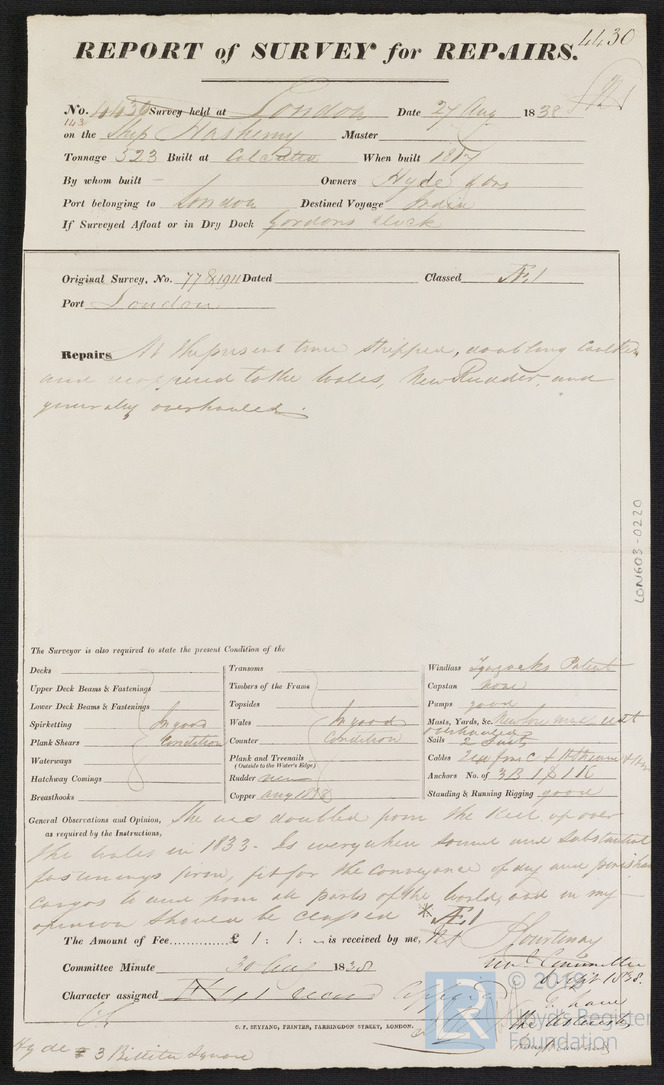 4430
REPORT of SURVEY for REPAIRS.
No. 4430 Survey held at London Date 27 Aug 1838
143
on the Ship Hashemy Master
Tonnage 523 Built at Calcutta When built 1817
By whom built — Owners Hyde &
Port belonging to London Destined Voyage India
If Surveyed Afloat or in Dry Dock Gordons dock
Original Survey, No. 77 & 1911 Dated Classed Æ 1
Port London
Repairs At the present time stripped, doubling caulked
and recoppered to the Wales, New Rudder, and
generally overhauled.
LON603-0220
The Surveyor is also required to state the present Condition of the
Decks
Upper Deck Beams & Fastenings
Lower Deck Beams & Fastenings
Spirketting In good
Plank Shears Condition
Waterways
Hatchway Comings
Breasthooks
Transoms
Timbers of the Frame
Topsides
Wales In good
Counter Condition
Plank and Treenails
(Outside to the Water's Edge)
Rudder new
Copper Aug 1838
Windlass Patent
Capstan None
Pumps good
Masts, Yards, &c. New fore mast, rest
overhauled
Sails 2 Suits
Cables
Anchors No. of 3 B 1 S 1 K
Standing & Running Rigging good
General Observations and Opinion, She was doubled from the Keel up over
as required by the Instructions,
the Wales in 1833 - Is everywhere sound and substantial
fastenings firm, fit for the conveyance of dry and perishable
cargos to and from all parts of the world, and in my
opinion should be classed * Æ 1
The Amount of Fee £ 1 : 1 : — is received by me, Courtenay
Committee Minute 30 Aug 1838
1838.
Character assigned
© 2019
LR
Lloyd's Register
Foundation
C. F. SEYFANG, PRINTER, FARRINGDON STREET, LONDON.
Hyde 3 Billiter Square